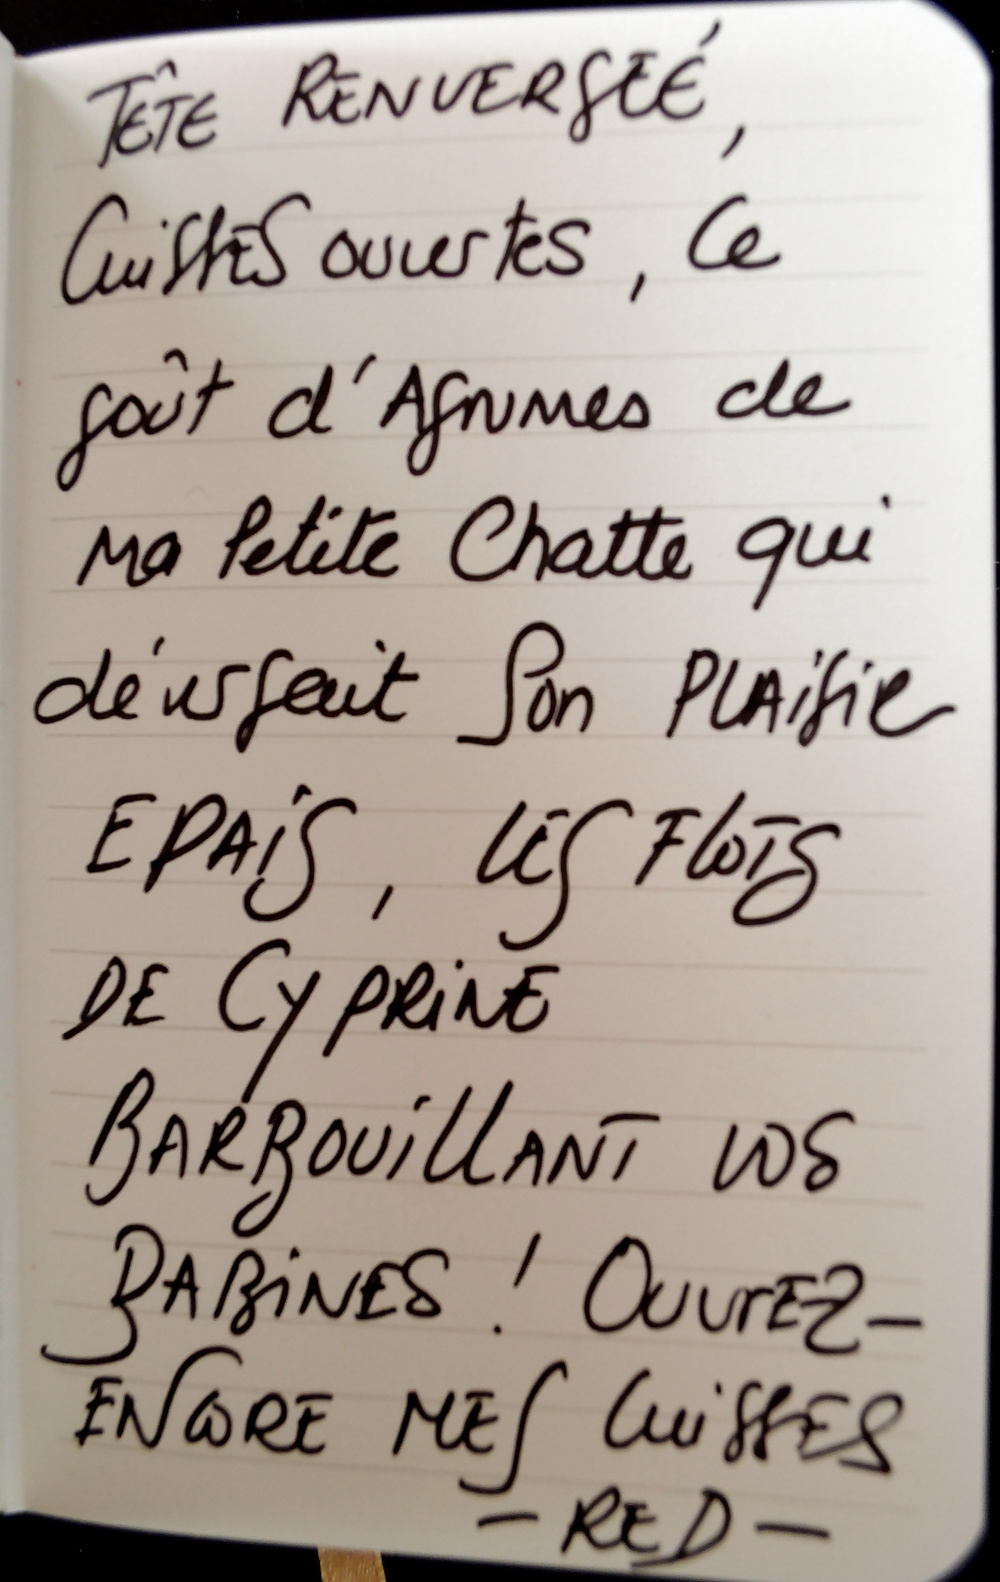 TÊTE RENVERSÉE,
Cuisses ouvertes, Ce
goût d'Agrumes de
ma Petite Chatte qui
déversait Son PLAisir
EPAiS, LES FLOTS
DE CYPRiNE
BARBOUiLLANT VOS
BABiNES ! OUVrEZ-
ENCORE MES CuiSSES
- RED -